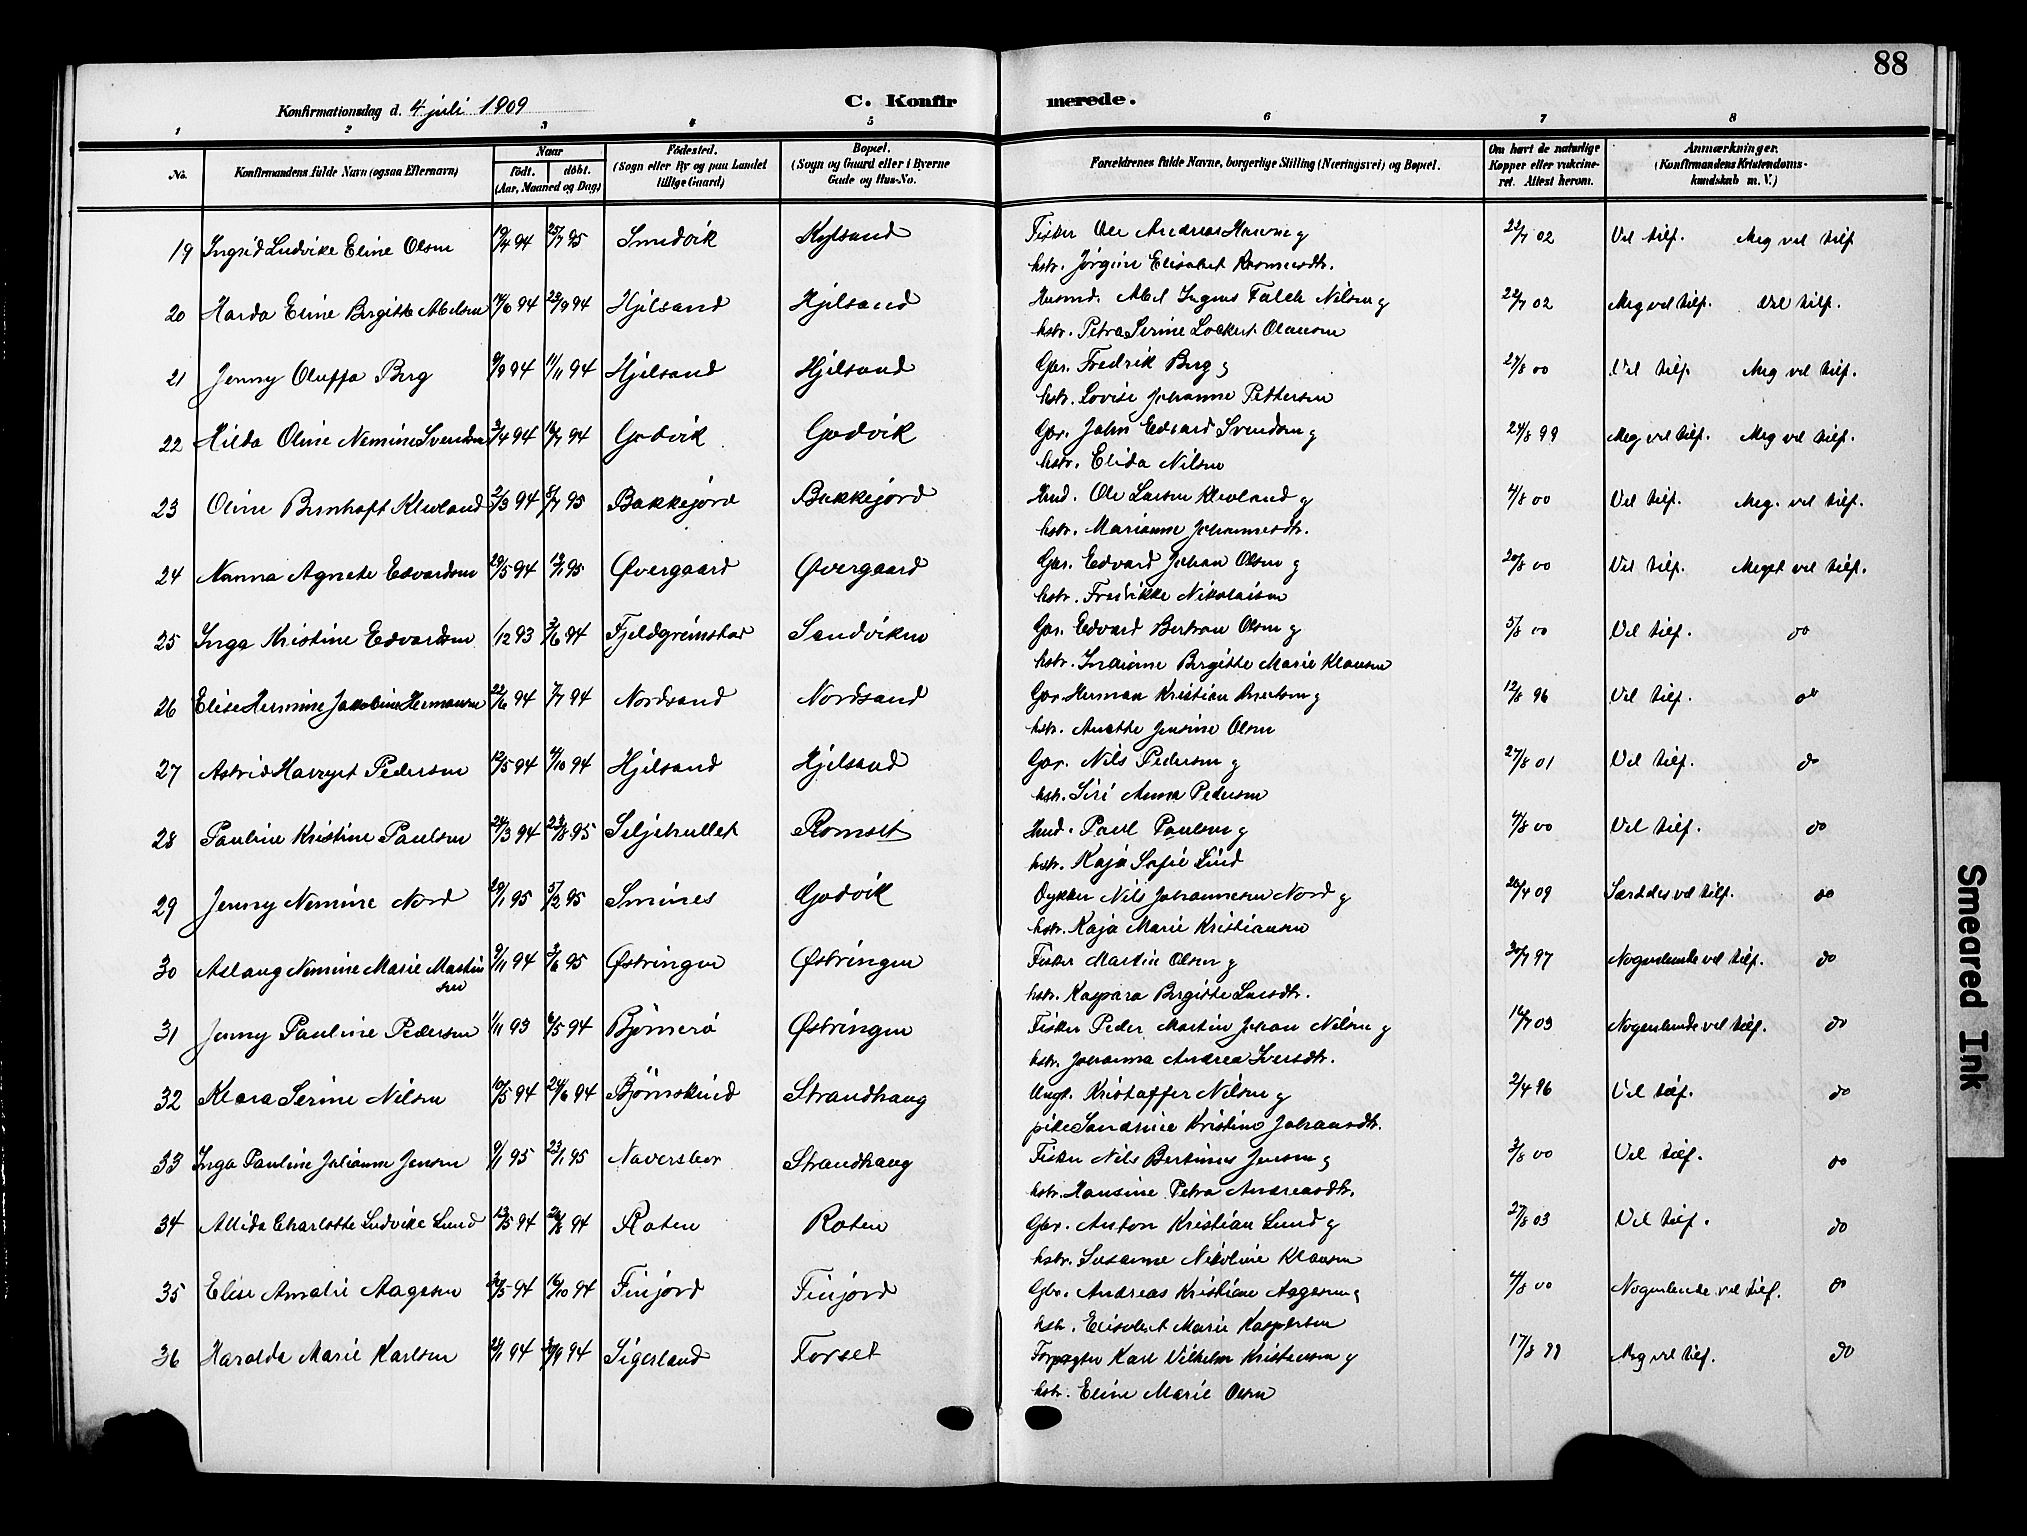 88
Konfirmationsdag d. 4 juli 1909
C. Konfirmerede.
1 2 3 4 5 6 7 8
No. Konfirmandens fulde Navn (ogsaa Efternavn) Naar født. døbt. (Aar, Maaned og Dag) Fødested. (Sogn eller By og paa Landet tillige Gaard) Bopæl. (Sogn og Gaard eller i Byerne Gade og Hus-No. Forældrenes fulde Navne, borgerlige Stilling (Næringsvei) og Bopæl. Om havt de naturlige Kopper eller vakcineret. Attest herom. Anmærkninger. (Konfirmandens Kristendomskundskab m. V.)
19 Ingrid Ludvike Eline Olsen 19/4 94 25/7 95 Smedvik Kjelsand Fisker Ole Andreas Hansen og 22/7 02 Vel tilf. Meg vel tilf
hstr. Jørgine Elisabet Rasmusdtr.
20 Harda Eline Birgitte Abelsen 14/6 94 23/9 94 Hjelsand Hjelsand Husmd. Abel Ingnus Falck Nilsen og 22/7 02 Meg vel tilf. Vel tilf.
hstr. Petra Serine Lockert Olausen
21 Jenny Oluffa Berg 9/9 94 11/11 94 Hjelsand Hjelsand Gbr. Fredrik Berg og 27/8 00 Vel tilf. Meg vel tilf.
hstr. Lovise Johanne Pettersen
22 Hilda Oline Nemine Svendsen 3/4 94 16/7 94 Godvik Godvik Gbr. John Edvard Svendsen og 24/8 99 Meg vel tilf. Meg vel tilf.
hstr. Elida Nilsen
23 Oline Bernhoft Klevland 2/3 94 8/7 95 Bakkejord Bakkejord Hmd. Ole Larsen Klevland og 4/8 00 Vel tilf. Meg. vel tilf.
hstr. Marianne Johannesdtr.
24 Nanna Agnete Edvardsen 29/5 94 13/1 95 Øvergaard Øvergaard Gbr. Edvard Johan Olsen og 20/8 00 Vel tilf. Meget vel tilf.
hstr. Fredrikke Nikolaisen
25 Inga Kristine Edvardsen 1/12 93 3/6 94 Fjeldgrimstad Sandviken Gbr. Edvard Bertran Olsen og 5/8 00 Vel tilf. do
hstr. Indiane Birgitte Marie Klausen
26 Elise Hermine Jakobine Hermansen 22/6 94 7/7 94 Nordsand Nordsand Gbr Herman Kristian Bertsen og 12/8 96 Vel tilf. do
hstr. Anette Jensine Olsen
27 Astrid Margret Pedersen 12/5 94 4/10 94 Hjelsand Hjelsand Gbr. Nils Pedersen og 27/8 01 Vel tilf. do
hstr. Siri Anna Pedersen
28 Pauline Kristine Paulsen 24/3 94 23/8 95 Seljehullet Romset Hmd. Paul Paulsen og 4/8 00 Vel tilf. do
hstr. Kaja Sofie Lind
29 Jenny Nemine Nord 29/1 95 5/2 95 Smines Godvik Dykker Nils Johannesen Nord og 26/4 09 Særdeles vel tilf. do
hstr. Kaja Marie Kristiansen
30 Aslaug Nemine Marie Martinsen 9/11 94 3/6 95 Østringen Østringen Fisker Martin Olsen og 30/7 97 Nogenlunde vel tilf. do
hstr. Kaspara Birgitte Larsdtr.
31 Jenny Pauline Pedersen 1/11 93 6/5 94 Bjørnerø Østringen Fisker Peder Martin Johan Nilsen og 16/7 03 Nogenlunde vel tilf. do
hstr. Johanna Andrea Iversdtr.
32 Klara Serine Nilsen 10/5 94 24/6 94 Bjørnskind Strandhaug Ungk. Kristoffer Nilsen og 2/4 96 Vel tilf. do
pike Sandrine Kristine Johansdtr.
33 Inga Pauline Julianne Jensen 9/1 95 23/1 95 Naversbor Strandhaug Fisker Nils Bertinus Jensen og 3/8 00 Vel tilf. do
hstr. Hansine Petra Andreasdtr.
34 Alida Charlotte Ludvike Lund 13/5 94 26/8 94 Roten Roten Gbr. Anton Kristian Lund og 27/8 03 Vel tilf. do
hstr. Susanne Nikoline Klausen
35 Elise Amalie Aagesen 30/5 94 16/10 94 Finjord Finjord Gbr. Andreas Kristian Aagesen og 4/8 00 Nogenlunde vel tilf. do
hstr. Elisabet Marie Kaspersen
36 Haralda Marie Karlsen 21/1 94 30/9 94 Sigerland Forset Forpagter Karl Vilhelm Kristensen og 17/8 99 Meg vel tilf. do
hstr. Eline Marie Olsen
Smeared Ink